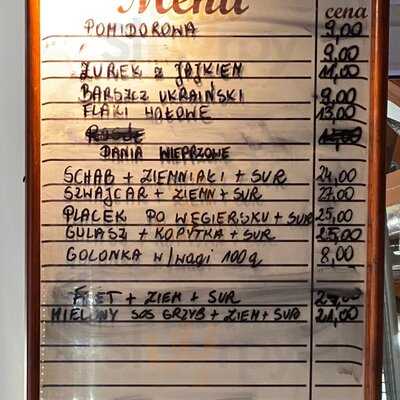 Menu
cena
POMIDOROWA 9,00
9,00
ŻUREK Z JAJKIEM 11,00
BARSZCZ UKRAIŃSKI 9,00
FLAKI WOŁOWE 13,00
DANIA WIEPRZOWE
SCHAB + ZIEMNIAKI + SUR 24,00
SZWAJCAR + ZIEMN + SUR 27,00
PLACEK PO WĘGIERSKU + SUR 25,00
GULASZ + KOPYTKA + SUR 25,00
GOLONKA W/wagi 100g 8,00
FRET + ZIEM + SUR
MIELONY SOS GRZYB + ZIEM + SUR 21,00